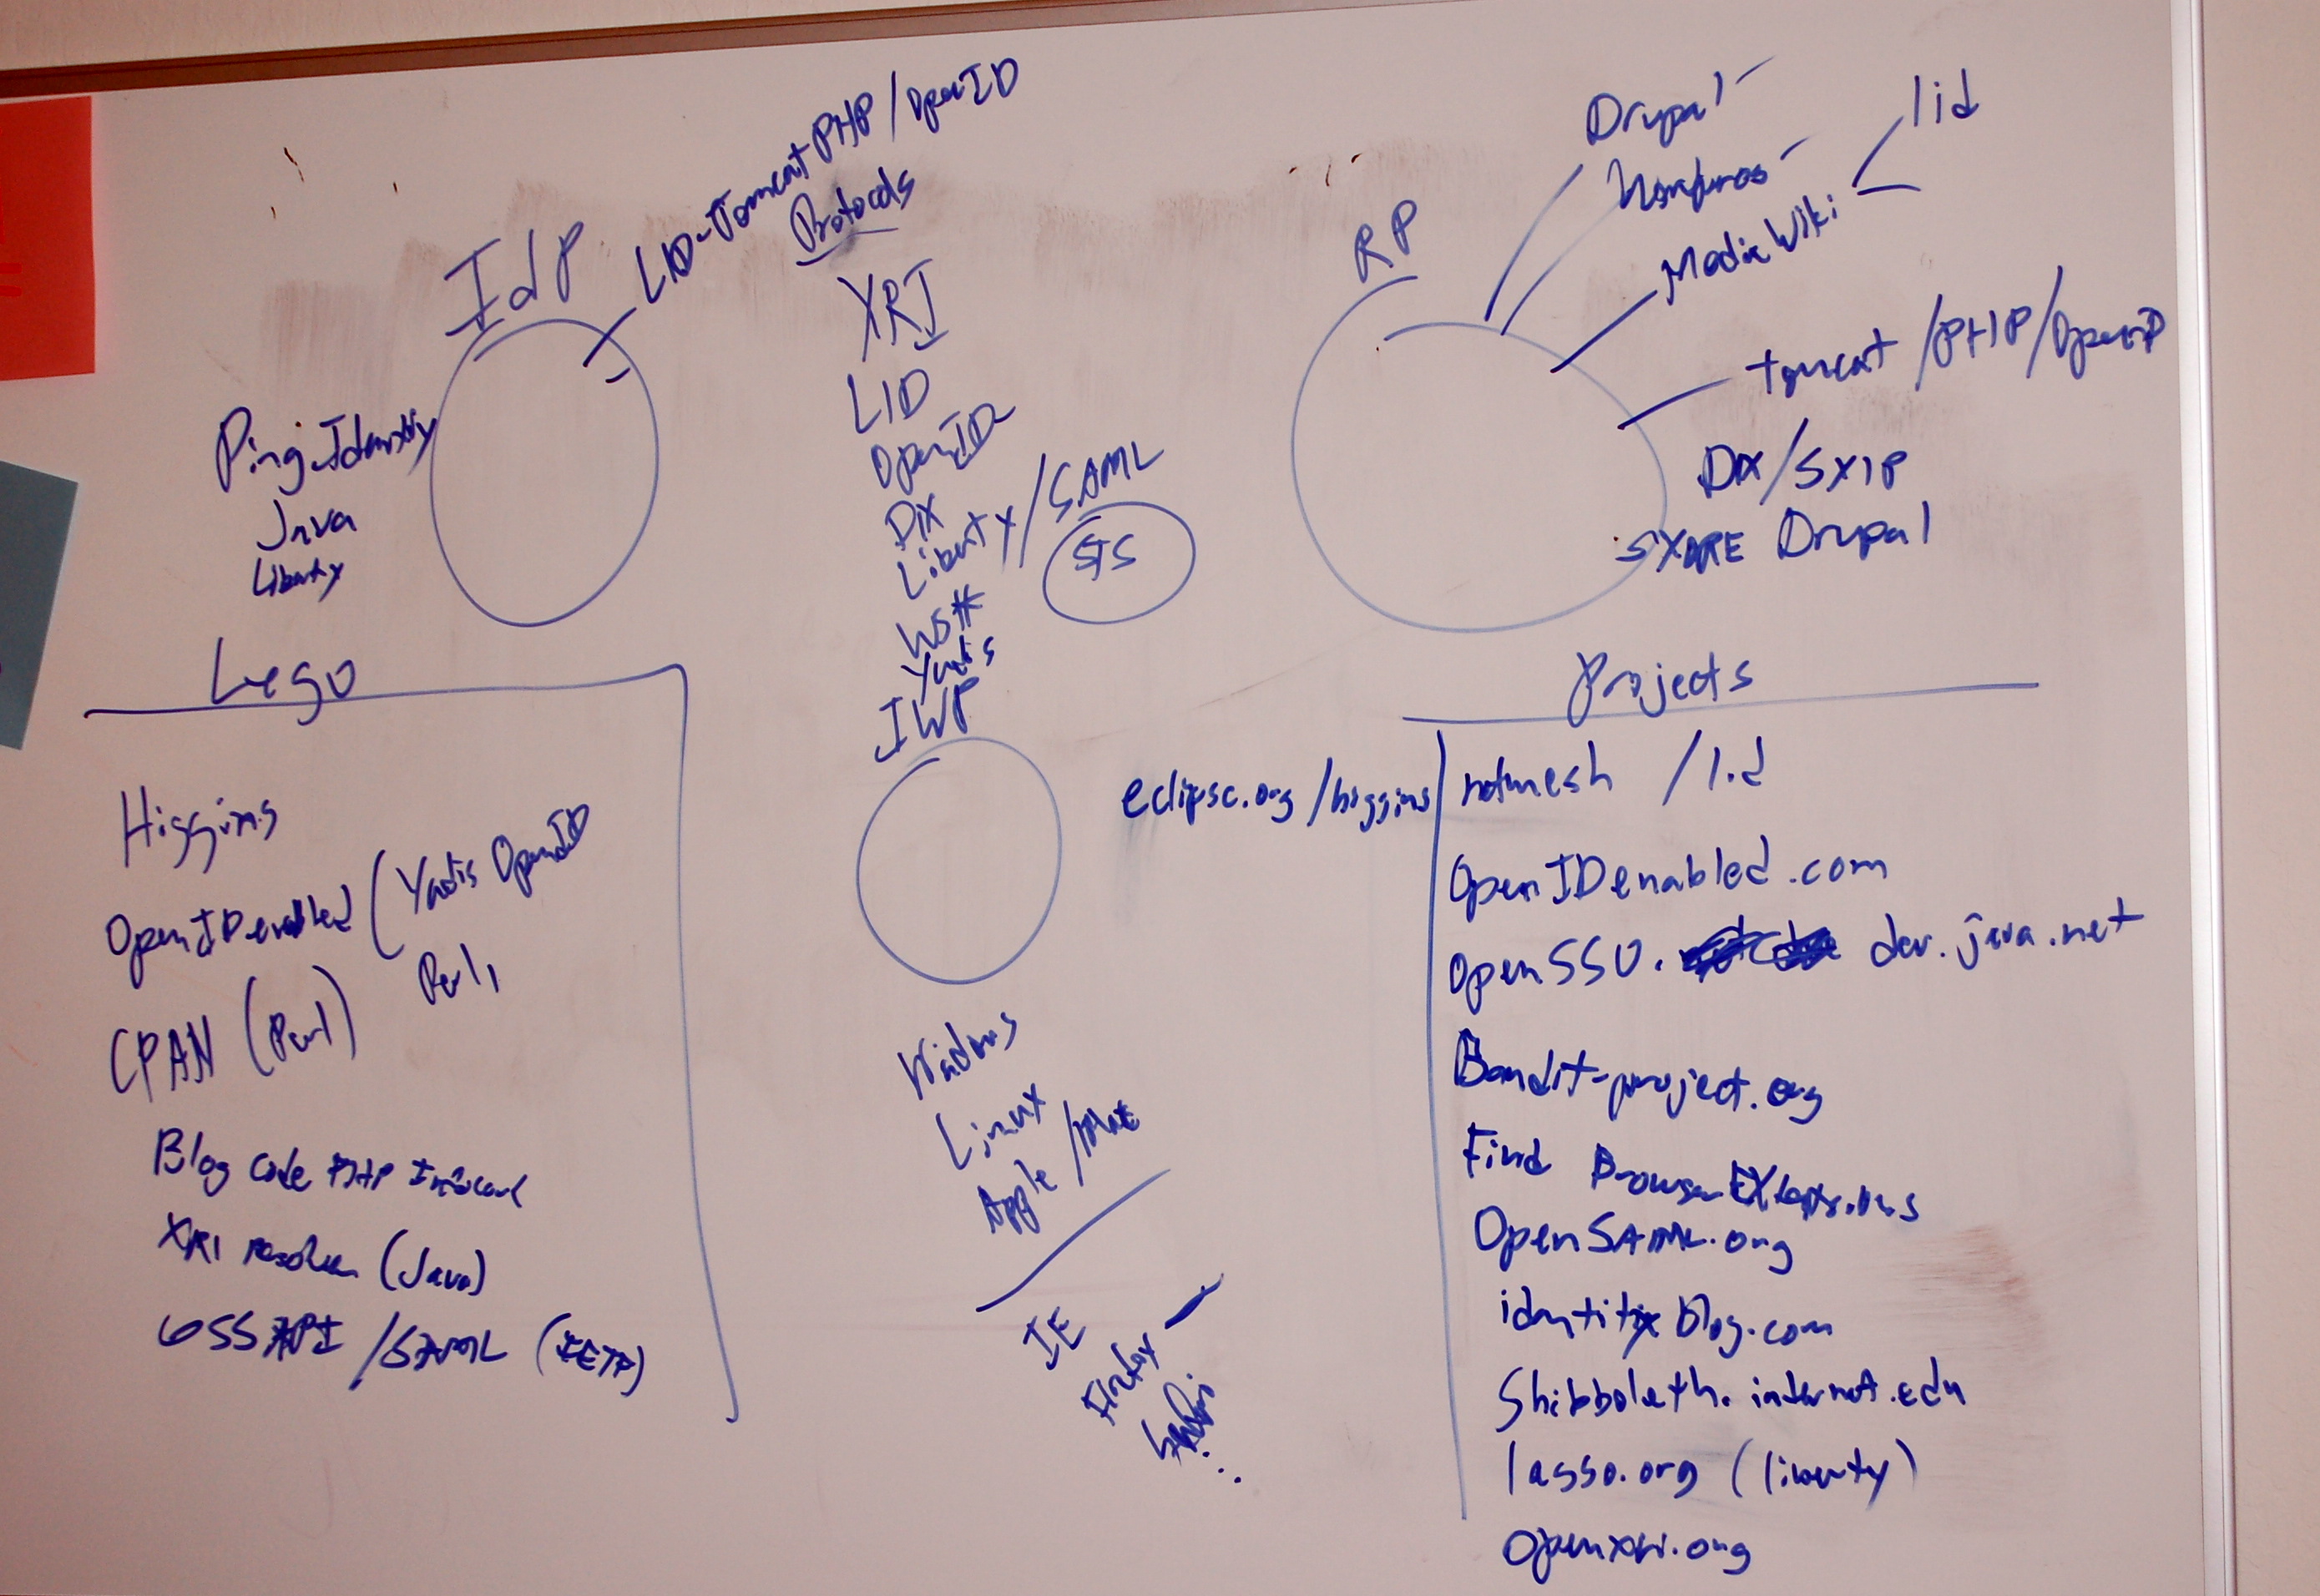 IdP
LID-Tomcat PHP/OpenID
Ping Identity
Java
Liberty
Protocols
XRI
LID
OpenID
DIX
Liberty/SAML
STS
WS*
Yadis
IWP
Windows
Linux
Apple/Mac
IE
Firefox
Safari
...
RP
Drupal
MediaWiki
lid
tomcat/PHP/OpenID
DIX/SXIP
SXORE Drupal
Lego
Higgins
OpenIDenabled (Yadis OpenID
Perl,
CPAN (Perl)
Blog code PHP Infocard
XRI resolver (Java)
GSS API /SAML (IETF)
Projects
eclipse.org/higgins
netmesh /lid
OpenIDenabled.com
OpenSSO. dev.java.net
Bandit-project.org
Find Browser Extensions
OpenSAML.org
identity blog.com
Shibboleth. internet.edu
lasso.org (liberty)
Openxri.org